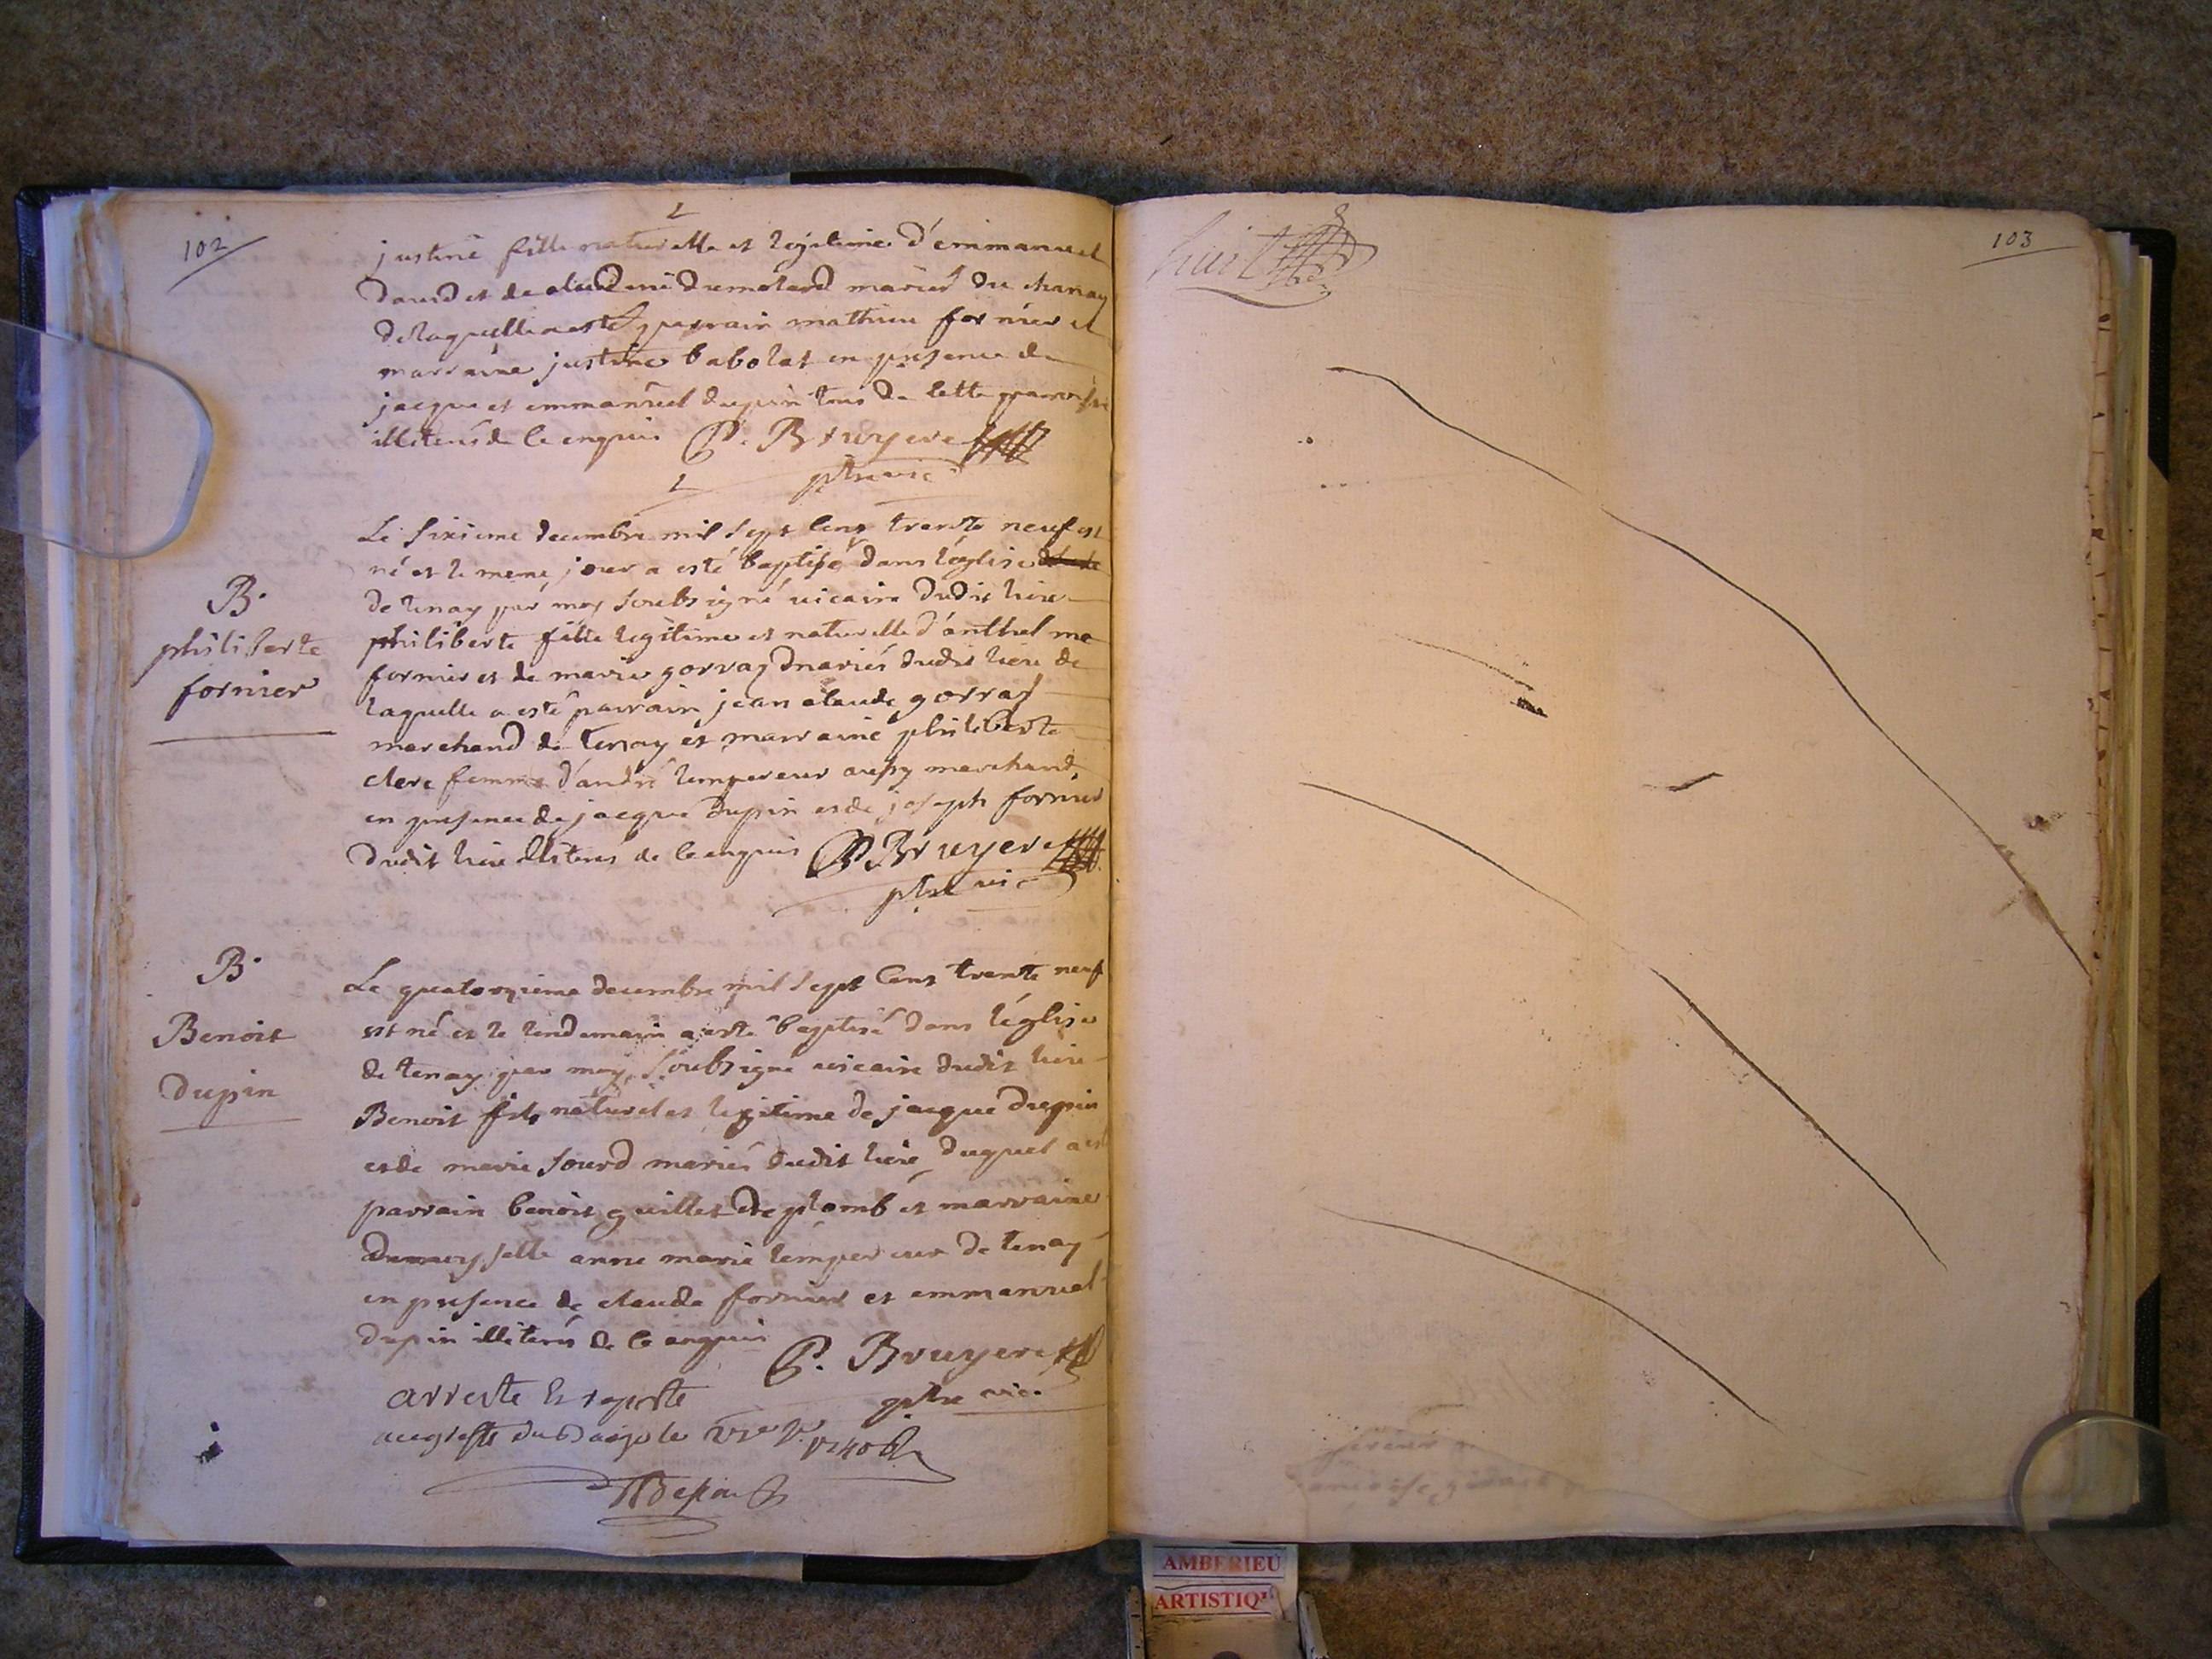 102
justine fille naturelle et legitime d'emmanuel
daud et de claudine dumolard mariés du chanay
de laquelle a esté parrain mathieu fornier et
marraine justine babolat en presence de
jacque et emmanuel dupin tous de cette parroisse
illiterés de ce enquis P. Bruyere
ptre vic
Le sixieme decembre mil sept cens trente neuf est
né et le meme jour a esté baptisé dans l'église
de tenay par moy soubsigné vicaire dudit lieu
philiberte fille legitime et naturelle d'anthel me
fornier et de marie gorraz mariés dudit lieu de
laquelle a esté parrain jean claude gorraz
marchand de tenay et marraine philiberte
clerc femme d'andré lempereur aussy marchand
en presence de jacque dupin et de joseph fornier
dudit lieu illiterés de ce enquis P. Bruyere
ptre vic
B.
philiberte
fornier
Le quatorzieme decembre mil sept cens trente neuf
est né et le lendemain a esté baptisé dans l'église
de tenay par moy soubsigne vicaire dudit lieu
Benoit fils naturel et legitime de jacque dupin
et de marie sourd mariés dudit lieu duquel a est
parrain benoit guillet de plomb et marraine
demoyselle anne marie lempereur de tenay
en presence de claude fornier et emmanuel
dupin illiterés de ce enquis P. Bruyere
ptre vic.
B.
Benoit
dupin
arresté Et reporté
au greffe du 1740
huit
103
AMBERIEU
ARTISTIQ